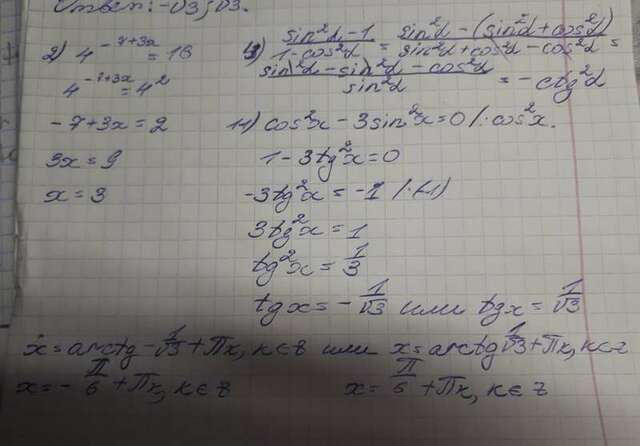 Ответ: -√3; √3.
2) 4^(-7+3x) = 16
4^(-7+3x) = 4^2
-7+3x = 2
3x = 9
x = 3
(sin²α - 1)/(1 - cos²α) = (sin²α - (sin²α + cos²α))/(sin²α + cos²α - cos²α) =
(sin²α - sin²α - cos²α)/(sin²α) = -ctg²α
11) cos²x - 3sin²x = 0 /: cos²x.
1 - 3tg²x = 0
-3tg²x = -1 /·(-1)
3tg²x = 1
tg²x = 1/3
tgx = -1/√3 или tgx = 1/√3
x = arctg - 1/√3 + πк, к ∈ z или x = arctg 1/√3 + πк, к ∈ z
x = -π/6 + πк, к ∈ z x = π/6 + πк, к ∈ z